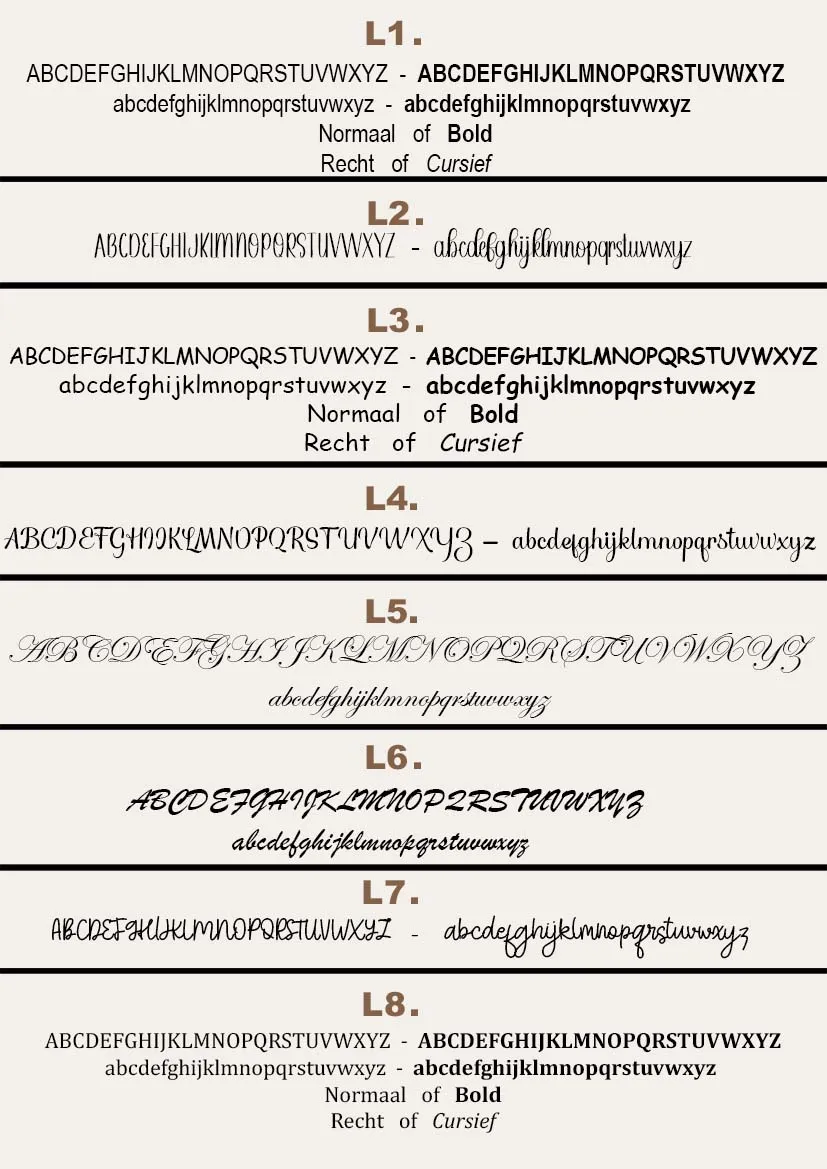 L1.
ABCDEFGHIJKLMNOPQRSTUVWXYZ - ABCDEFGHIJKLMNOPQRSTUVWXYZ
abcdefghijklmnopqrstuvwxyz - abcdefghijklmnopqrstuvwxyz
Normaal of Bold
Recht of Cursief
L2.
ABCDEFGHIJKLMNOPQRSTUVWXYZ - abcdefghijklmnopqrstuvwxyz
L3.
ABCDEFGHIJKLMNOPQRSTUVWXYZ - ABCDEFGHIJKLMNOPQRSTUVWXYZ
abcdefghijklmnopqrstuvwxyz - abcdefghijklmnopqrstuvwxyz
Normaal of Bold
Recht of Cursief
L4.
ABCDEFGHIJKLMNOPQRSTUVWXYZ - abcdefghijklmnopqrstuvwxyz
L5.
ABCDEFGHIJKLMNOPQRSTUVWXYZ
abcdefghijklmnopqrstuvwxyz
L6.
ABCDEFGHIJKLMNOPQRSTUVWXYZ
abcdefghijklmnopqrstuvwxyz
L7.
ABCDEFGHIJKLMNOPQRSTUVWXYZ - abcdefghijklmnopqrstuvwxyz
L8.
ABCDEFGHIJKLMNOPQRSTUVWXYZ - ABCDEFGHIJKLMNOPQRSTUVWXYZ
abcdefghijklmnopqrstuvwxyz - abcdefghijklmnopqrstuvwxyz
Normaal of Bold
Recht of Cursief